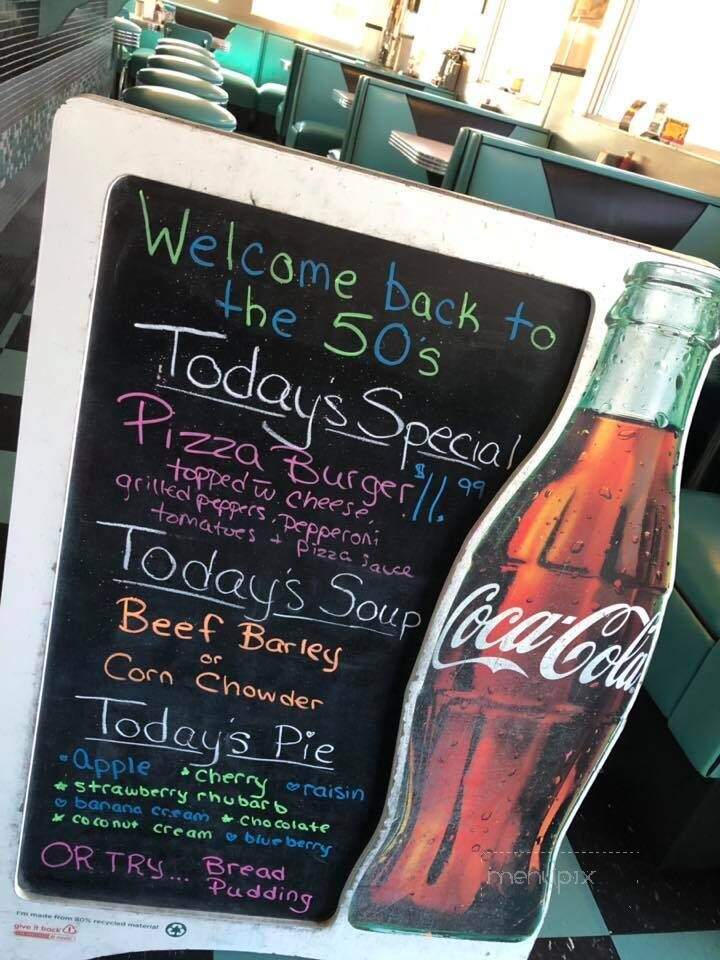 Welcome back to
the 50's
Today's Special
Pizza Burger $11.99
topped w. cheese,
grilled peppers, pepperoni
tomatoes + pizza sauce
Today's Soup
Beef Barley
or
Corn Chowder
Today's Pie
• apple • cherry • raisin
* strawberry rhubarb
• banana cream * chocolate
* coconut cream • blueberry
OR TRY... Bread
Pudding
Coca-Cola
I'm made from 80% recycled material
give it back
menupix